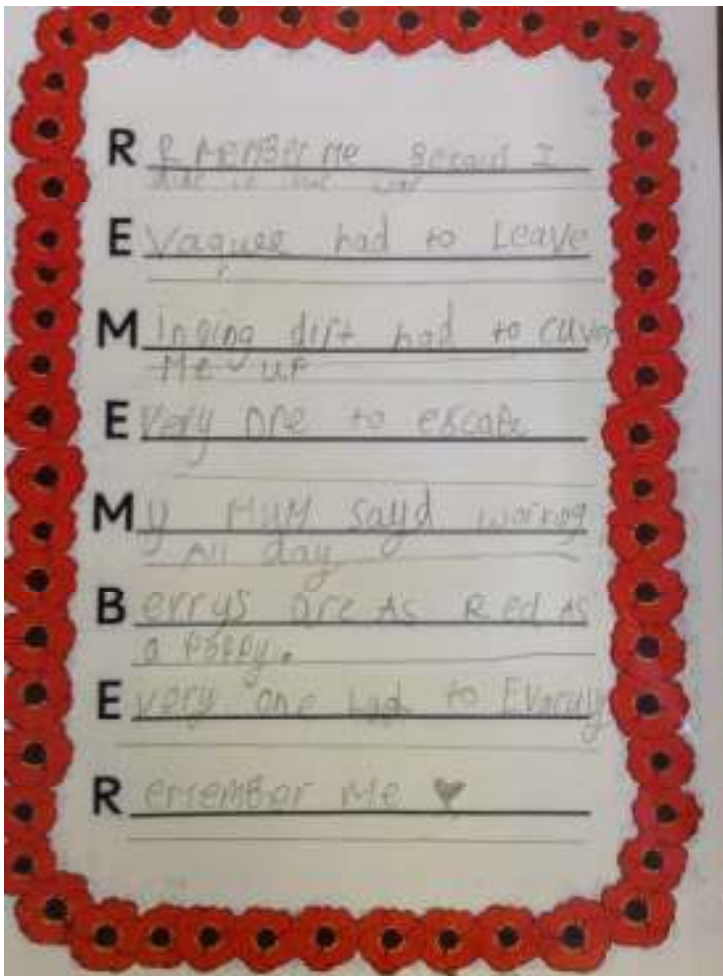 R EMEMBER Me Becaus I
dide in the war
E Vaquee had to Leave
M inging dirt had to cuver
Me up
E very one to escape
M y MuM sayd working
All day
B errys are As Red As
a Poppy.
E very one had to
R emember Me